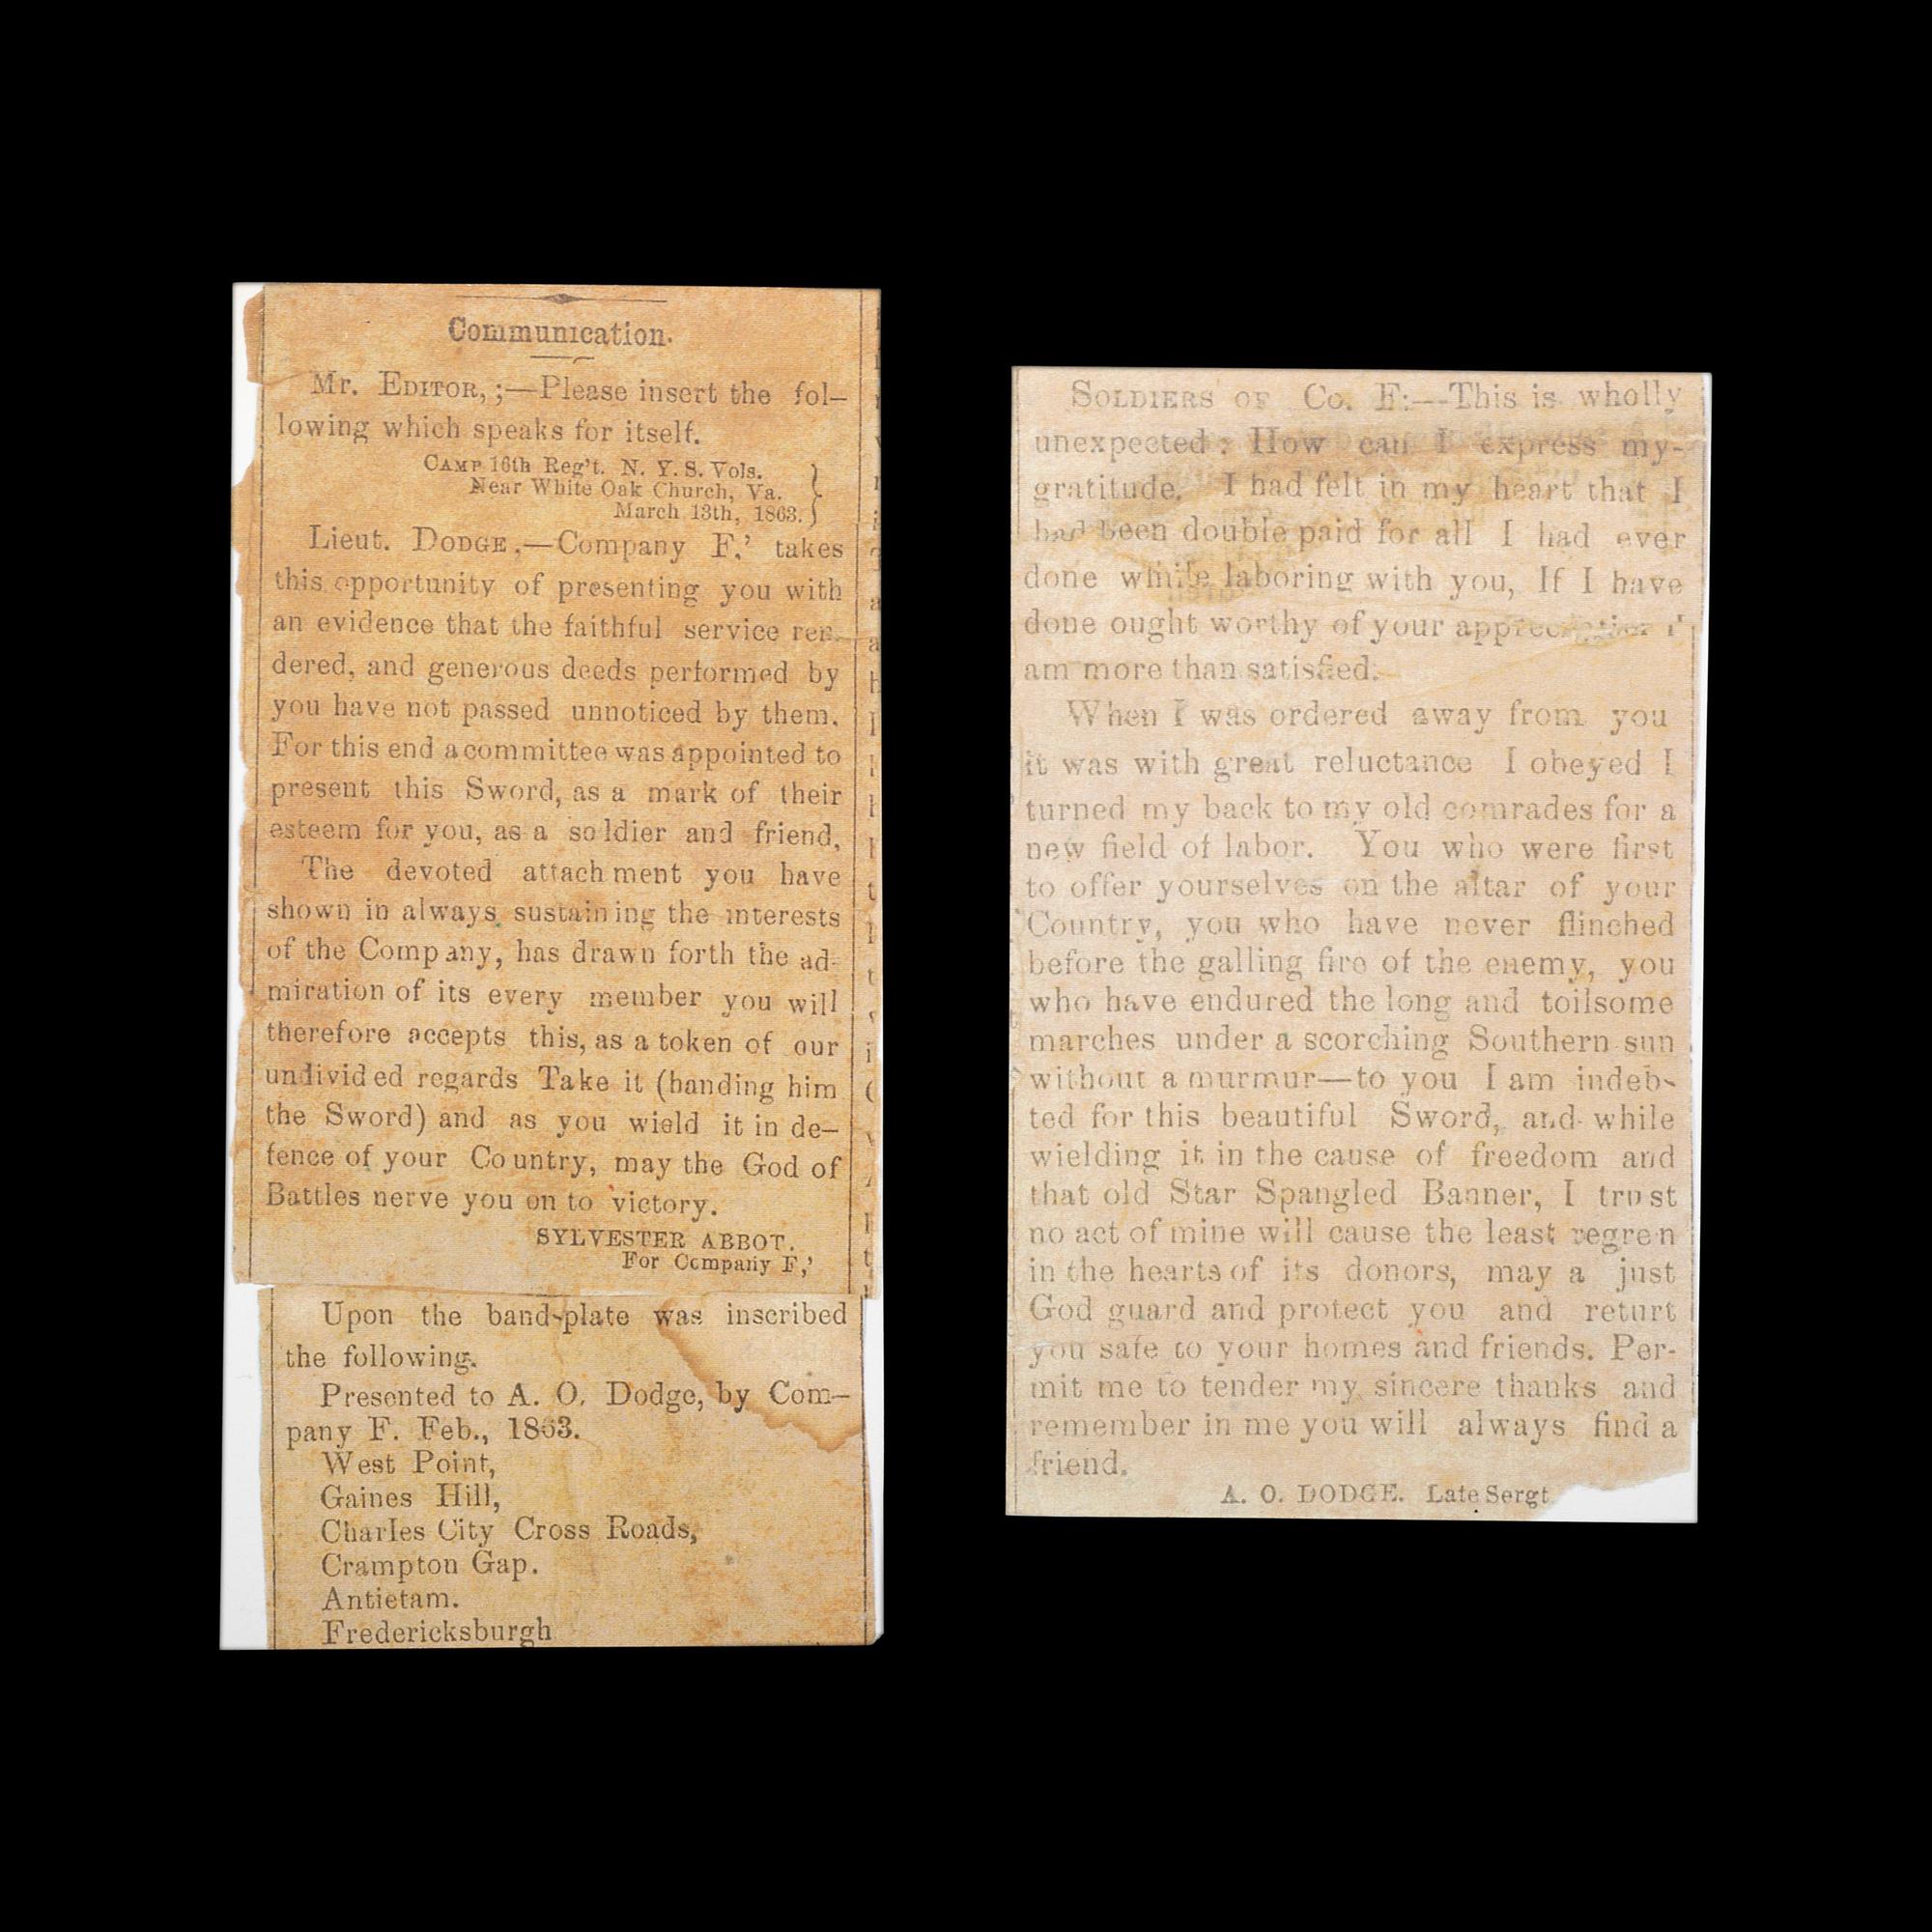 Communication.
Mr. EDITOR, ;—Please insert the fol—
lowing which speaks for itself.
CAMP 16th Reg't. N. Y. S. Vols.
Near White Oak Church, Va.
March 13th, 1863.
Lieut. DODGE,—Company F,' takes
this opportunity of presenting you with
an evidence that the faithful service ren-
dered, and generous deeds performed by
you have not passed unnoticed by them.
For this end a committee was appointed to
present this Sword, as a mark of their
esteem for you, as a soldier and friend,
The devoted attachment you have
shown in always sustaining the interests
of the Company, has drawn forth the ad-
miration of its every member you will
therefore accepts this, as a token of our
undivided regards Take it (handing him
the Sword) and as you wield it in de—
fence of your Country, may the God of
Battles nerve you on to victory.
SYLVESTER ABBOT.
For Company F,'
Upon the band-plate was inscribed
the following.
Presented to A. O. Dodge, by Com—
pany F. Feb., 1863.
West Point,
Gaines Hill,
Charles City Cross Roads,
Crampton Gap.
Antietam.
Fredericksburgh
SOLDIERS OF Co. F:—This is wholly
unexpected: How can I express my-
gratitude. I had felt in my heart that I
had been double paid for all I had ever
done while laboring with you, If I have
done ought worthy of your appreciation I
am more than satisfied.
When I was ordered away from you
it was with great reluctance I obeyed I
turned my back to my old comrades for a
new field of labor. You who were first
to offer yourselves on the altar of your
Country, you who have never flinched
before the galling fire of the enemy, you
who have endured the long and toilsome
marches under a scorching Southern sun
without a murmur—to you I am indeb-
ted for this beautiful Sword, and while
wielding it in the cause of freedom and
that old Star Spangled Banner, I trust
no act of mine will cause the least regren
in the hearts of its donors, may a just
God guard and protect you and returt
you safe to your homes and friends. Per-
mit me to tender my sincere thanks and
remember in me you will always find a
friend.
A. O. DODGE. Late Sergt